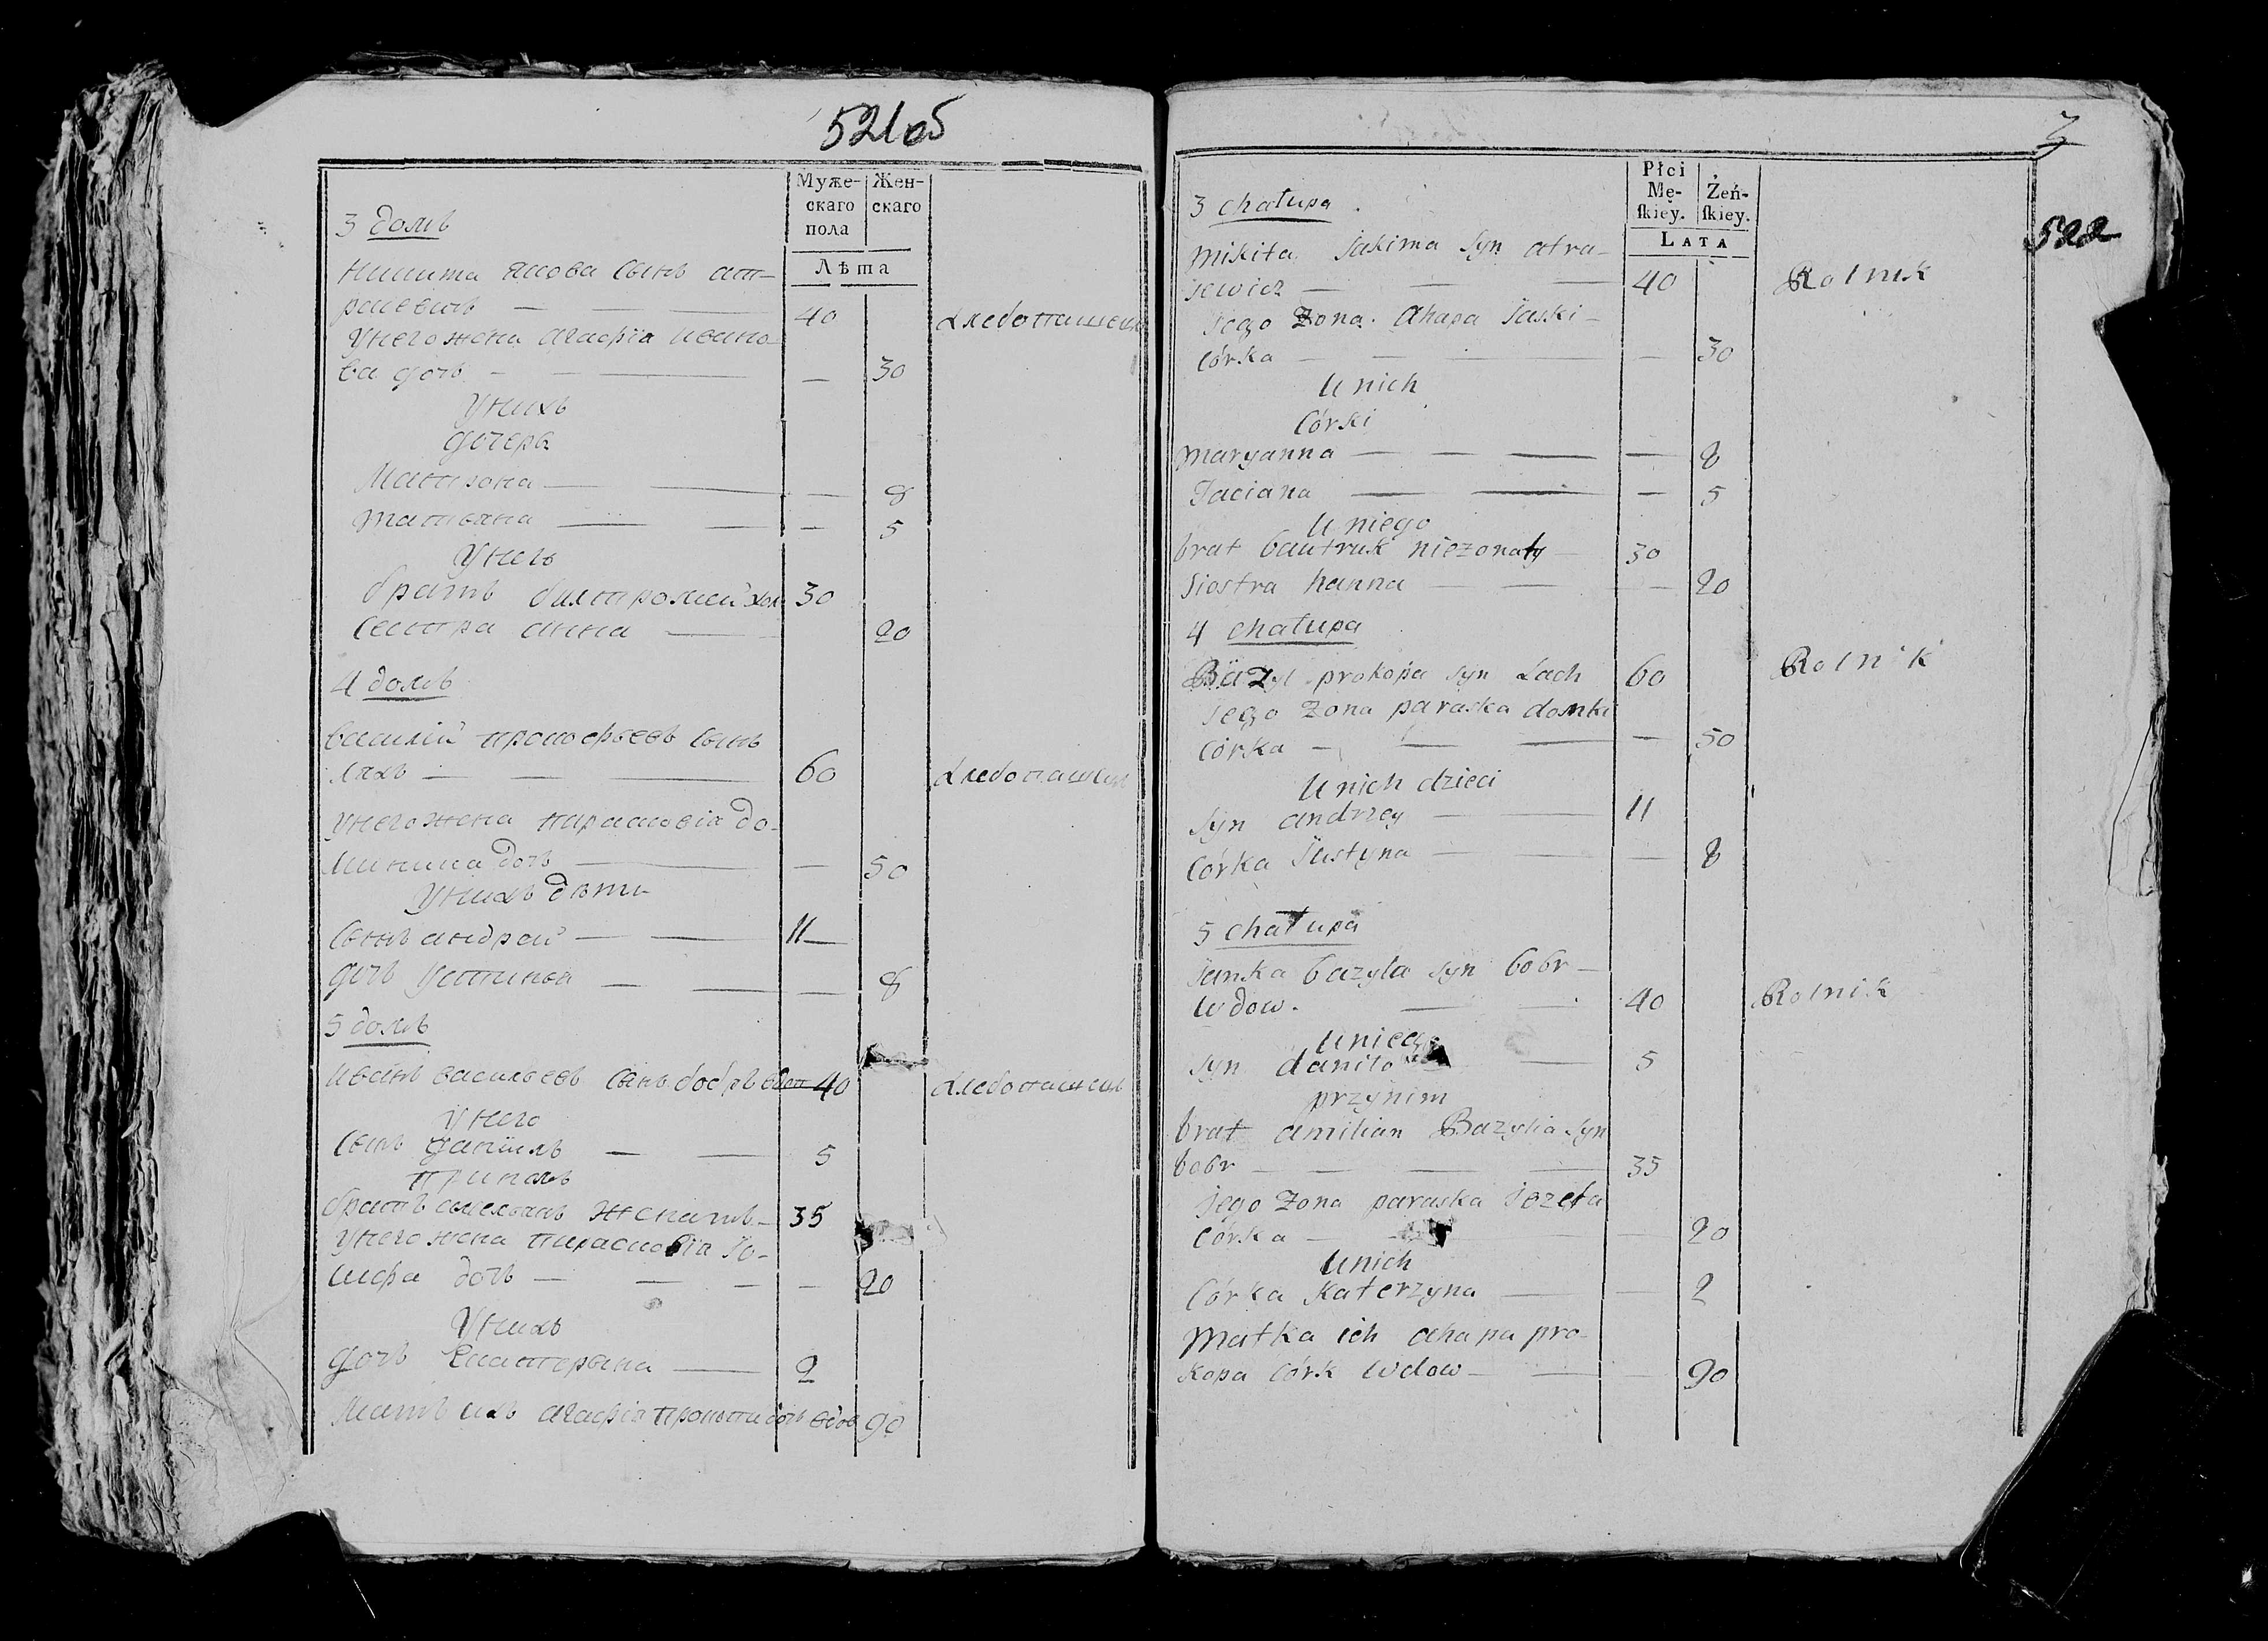 521об
Муже-
скаго
пола
Жен-
скаго
Лѣта
3 домъ
Никита Якова Сынъ ат-
раевичъ — 40 хлебопашецъ
Унего жена агафiа ивано-
ва дочь — — 30
Унихъ
дочерѣ
Матрона — — 8
татьяна — — 5
Унего
братъ балтромей хол 30
Сестра анна — 20
4 домъ
василiй прокофьевъ Сынъ
ляхъ — 60 хлебопашецъ
унего жена парасковiа до-
минина дочь — — 50
Унихъ дѣти
Сынъ андрей — 11
дочь устинья — — 8
5 домъ
иванъ васильевъ Сынъ бобръ вдов 40 хлебопашецъ
унего
Сынъ данiилъ — 5
принемъ
братъ амельянъ женатъ — 35
Унего жена парасковiа Iо-
сифа дочь — — 20
Унихъ
дочь Екатерына — 2
Мать ихъ агафiа прокопа дочь вдов 90
3
522
Płci
Mę-
ſkiey.
Żeń-
ſkiey.
LATA
3 chałupa
Mikita Jakima Syn atra-
jewicz — 40 Rolnik
Jego Zona Ahapa Jaski-
Córka — — 30
U nich
Córki
Maryanna — — 8
Taciana — — 5
U niego
brat bautruk niezonaty — 30
Siostra hanna — — 20
4 chałupa
Bazyl prokopa syn Lach 60 Rolnik
Jego Zona paraska domki
Córka — — 50
U nich dzieci
Syn andrzey — 11
Córka Justyna — — 8
5 chatupa
Janka bazyla syn bobr —
Wdow. — 40 Rolnik
U niego
Syn daniło — 5
przynim
brat amilian Bazylia syn
bobr — 35
jego Zona paraska jozefa
Córka — — 20
U nich
Córka Katerzyna — — 2
Matka ich ahapa pro-
kopa Córk Wdow — — 90